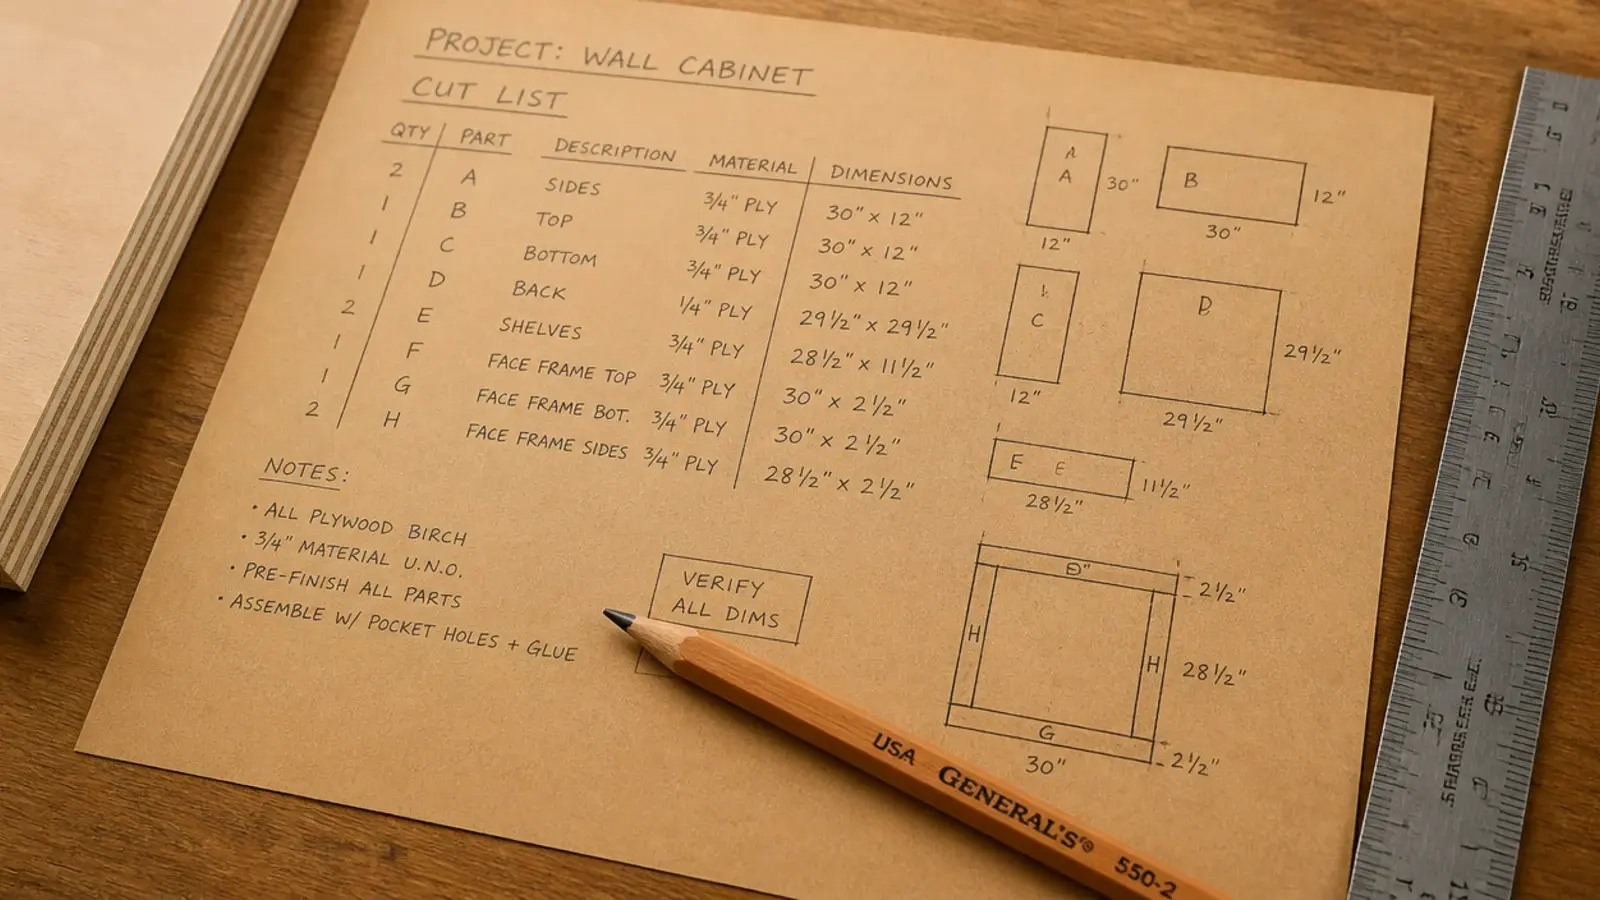 PROJECT: WALL CABINET
CUT LIST
QTY PART DESCRIPTION MATERIAL DIMENSIONS
2 A SIDES 3/4" PLY 30" x 12"
1 B TOP 3/4" PLY 30" x 12"
1 C BOTTOM 3/4" PLY 30" x 12"
1 D BACK 1/4" PLY 29 1/2" x 29 1/2"
2 E SHELVES 3/4" PLY 28 1/2" x 11 1/2"
1 F FACE FRAME TOP 3/4" PLY 30" x 2 1/2"
1 G FACE FRAME BOT. 3/4" PLY 30" x 2 1/2"
2 H FACE FRAME SIDES 3/4" PLY 28 1/2" x 2 1/2"
NOTES:
• ALL PLYWOOD BIRCH
• 3/4" MATERIAL U.N.O.
• PRE-FINISH ALL PARTS
• ASSEMBLE W/ POCKET HOLES + GLUE
VERIFY
ALL DIMS
A
30"
12"
B
12"
30"
C
12"
D
29 1/2"
29 1/2"
E E
11 1/2"
28 1/2"
2 1/2"
H
H
28 1/2"
G
2 1/2"
30"
USA GENERAL'S® 550-2